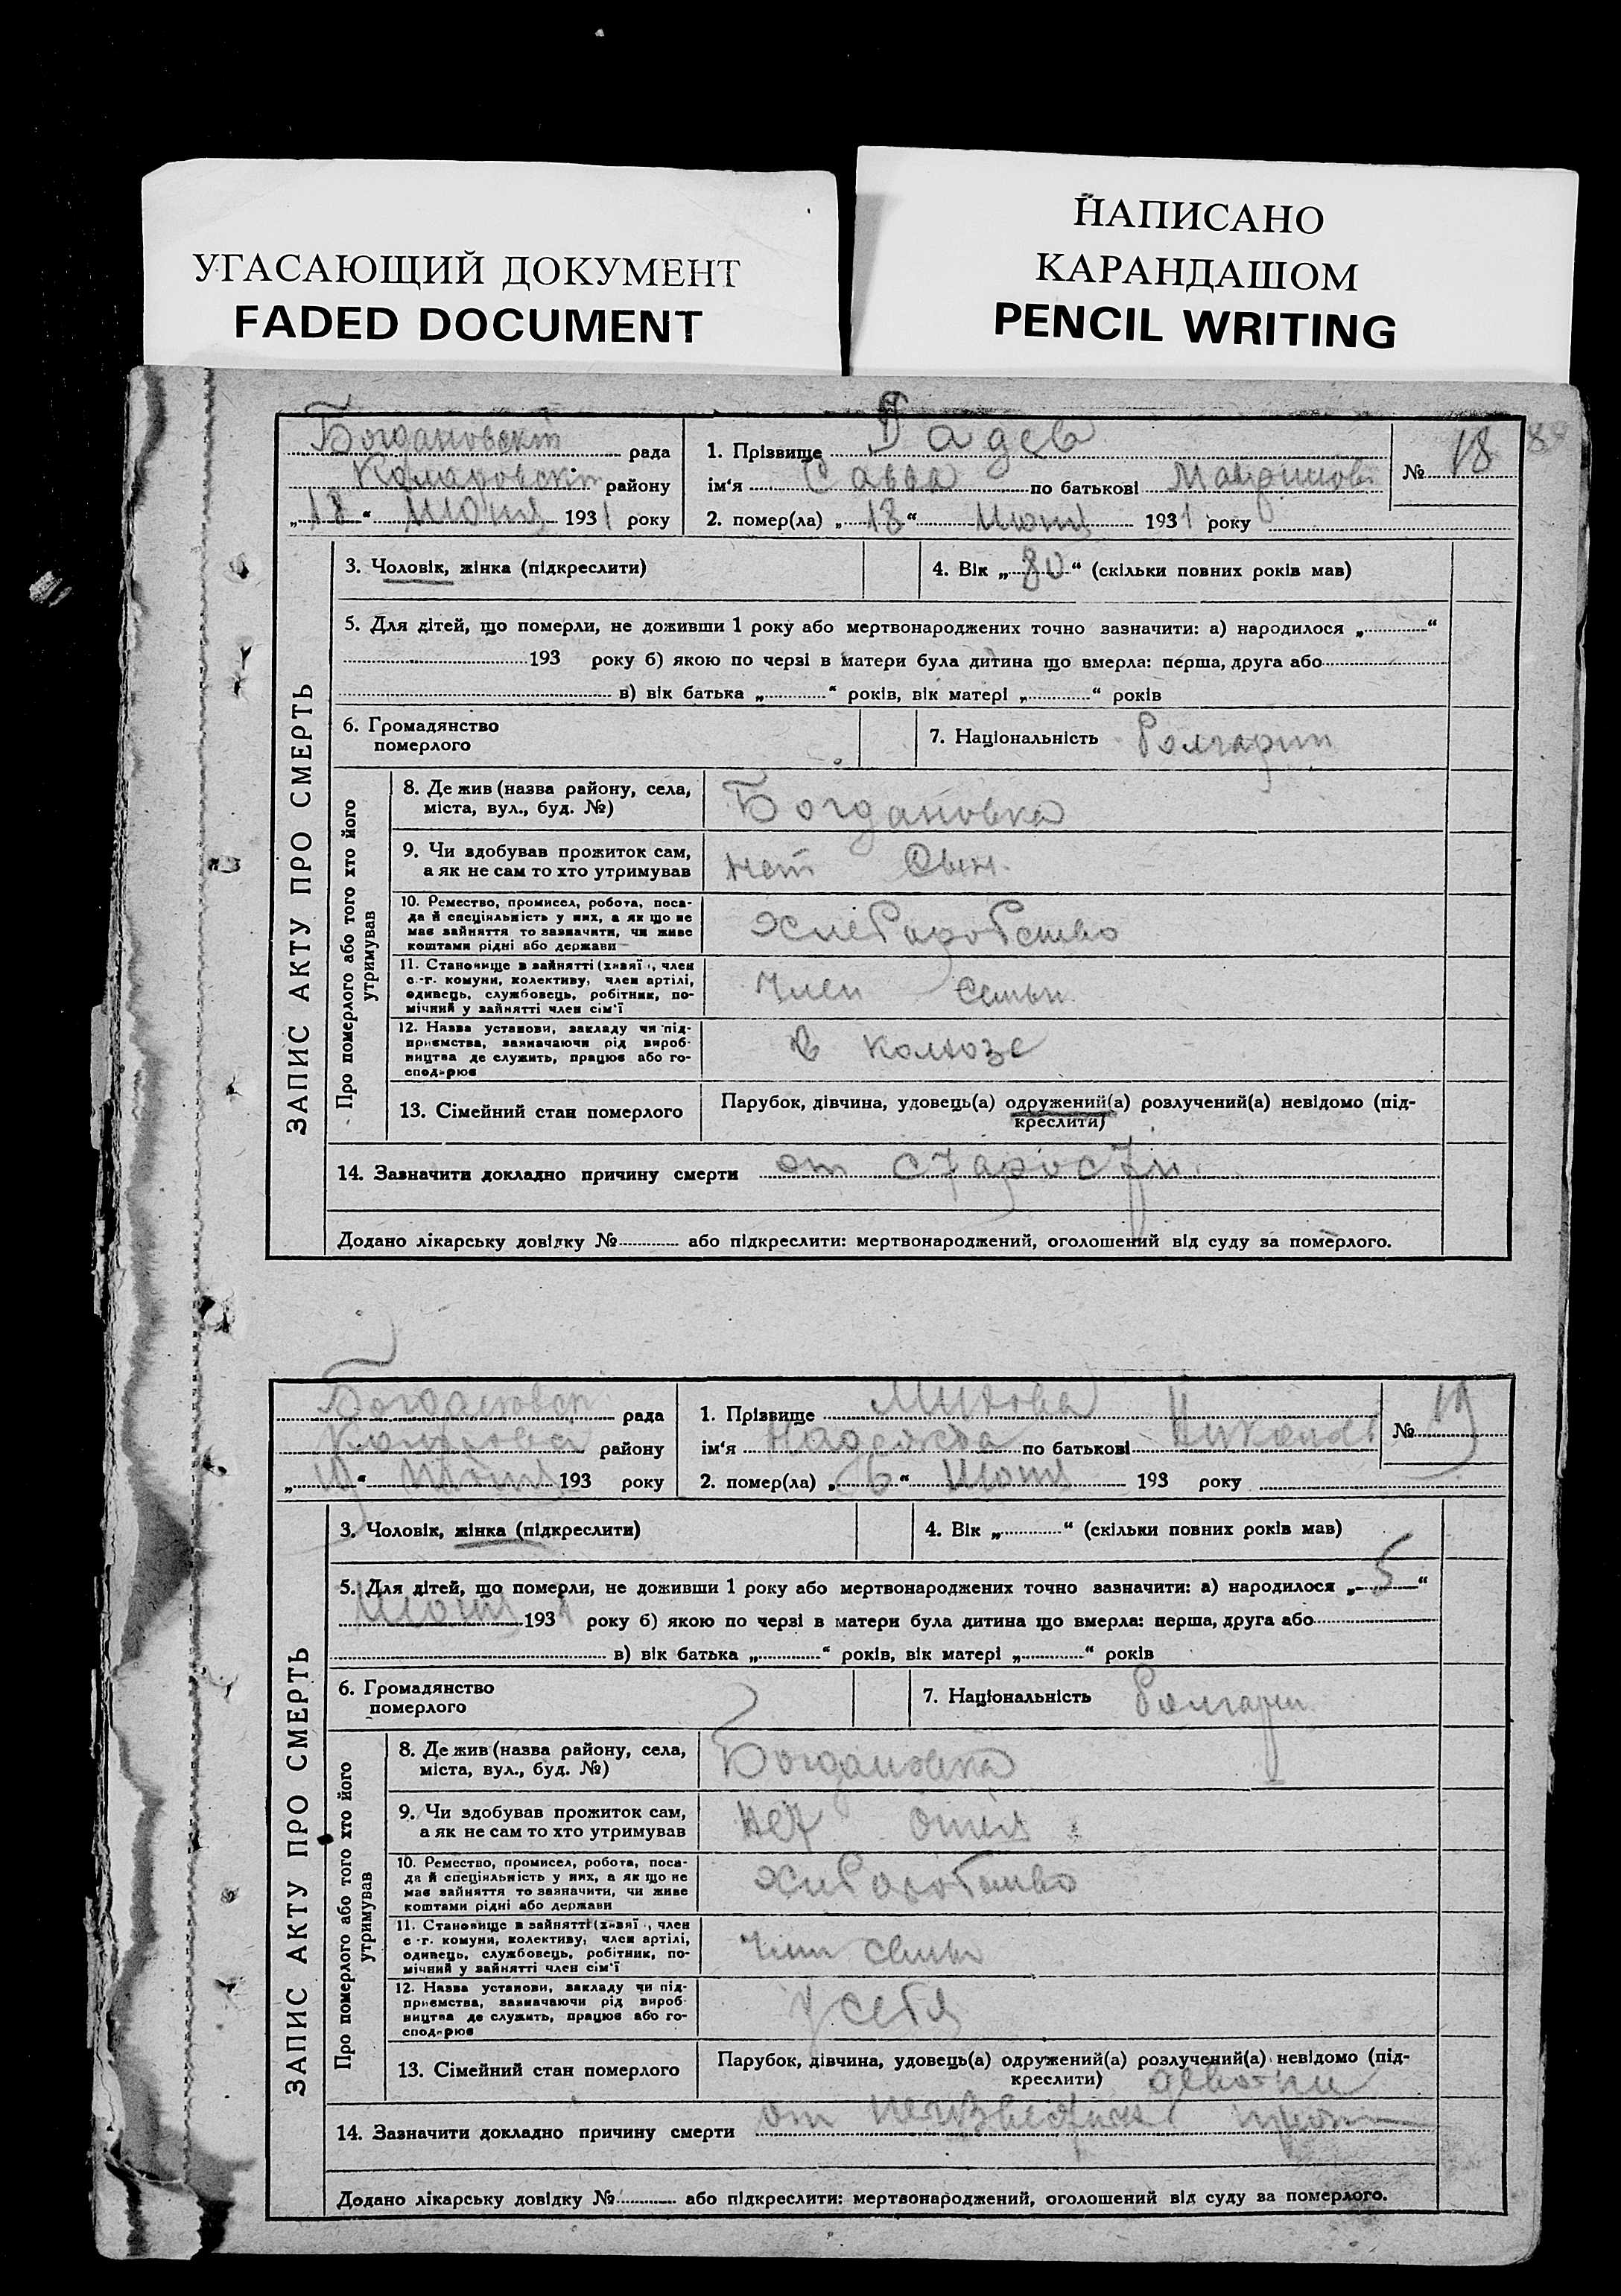 УГАСАЮЩИЙ ДОКУМЕНТ
FADED DOCUMENT
НАПИСАНО
КАРАНДАШОМ
PENCIL WRITING
ЗАПИС АКТУ ПРО СМЕРТЬ
рада
району
„18“ Июня 1931 року
1. Прізвище
ім‘я Савва по батькові
№ 18
2. помер(ла) „18“ Июня 1931 року
3. Чоловік, жінка (підкреслити)
4. Вік „80“ (скільки повних років мав)
5. Для дітей, що померли, не доживши 1 року або мертвонароджених точно зазначити: а) народилося „ “
193 року б) якою по черзі в матери була дитина що вмерла: перша, друга або
в) вік батька „ “ років, вік матері „ “ років
6. Громадянство
померлого
7. Національність болгарин
Про померлого або того хто його
утримував
8. Де жив (назва району, села,
міста, вул., буд. №)
Богдановка
9. Чи здобував прожиток сам,
а як не сам то хто утримував
нет Сын.
10. Ремество, промисел, робота, поса-
да й спеціяльність у них, а як що не
має зайняття то зазначити, чи живе
коштами рідні або держави
11. Становище в зайнятті (хазяї , член
с.-г. комуни, колективу, член артілі,
одивець, службовець, робітник, по-
мічний у зайнятті член сім‘ї
Член семьи
12. Назва установи, закладу чи під-
приємства, зазначаючи рід вироб-
ництва де служить, працює або го-
сподарює
в колхозе
13. Сімейний стан померлого
Парубок, дівчина, удовець(а) одружений(а) розлучений(а) невідомо (під-
креслити)
14. Зазначити докладно причину смерти от старости.
Додано лікарську довідку № або підкреслити: мертвонароджений, оголошений від суду за померлого.
ЗАПИС АКТУ ПРО СМЕРТЬ
рада
району
„19“ Июня 193 року
1. Прізвище
ім‘я Надежда по батькові
№ 19
2. помер(ла) „ “ Июня 193 року
3. Чоловік, жінка (підкреслити)
4. Вік „ “ (скільки повних років мав)
5. Для дітей, що померли, не доживши 1 року або мертвонароджених точно зазначити: а) народилося „5“
Июня 1931 року б) якою по черзі в матери була дитина що вмерла: перша, друга або
в) вік батька „ “ років, вік матері „ “ років
6. Громадянство
померлого
7. Національність
Про померлого або того хто його
утримував
8. Де жив (назва району, села,
міста, вул., буд. №)
Богдановка
9. Чи здобував прожиток сам,
а як не сам то хто утримував
нет отец
10. Ремество, промисел, робота, поса-
да й спеціяльність у них, а як що не
має зайняття то зазначити, чи живе
коштами рідні або держави
11. Становище в зайнятті (хазяї , член
с.-г. комуни, колективу, член артілі,
одивець, службовець, робітник, по-
мічний у зайнятті член сім‘ї
член семьи
12. Назва установи, закладу чи під-
приємства, зазначаючи рід вироб-
ництва де служить, працює або го-
сподарює
у себя
13. Сімейний стан померлого
Парубок, дівчина, удовець(а) одружений(а) розлучений(а) невідомо (під-
креслити)
14. Зазначити докладно причину смерти от
Додано лікарську довідку № або підкреслити: мертвонароджений, оголошений від суду за померлого.